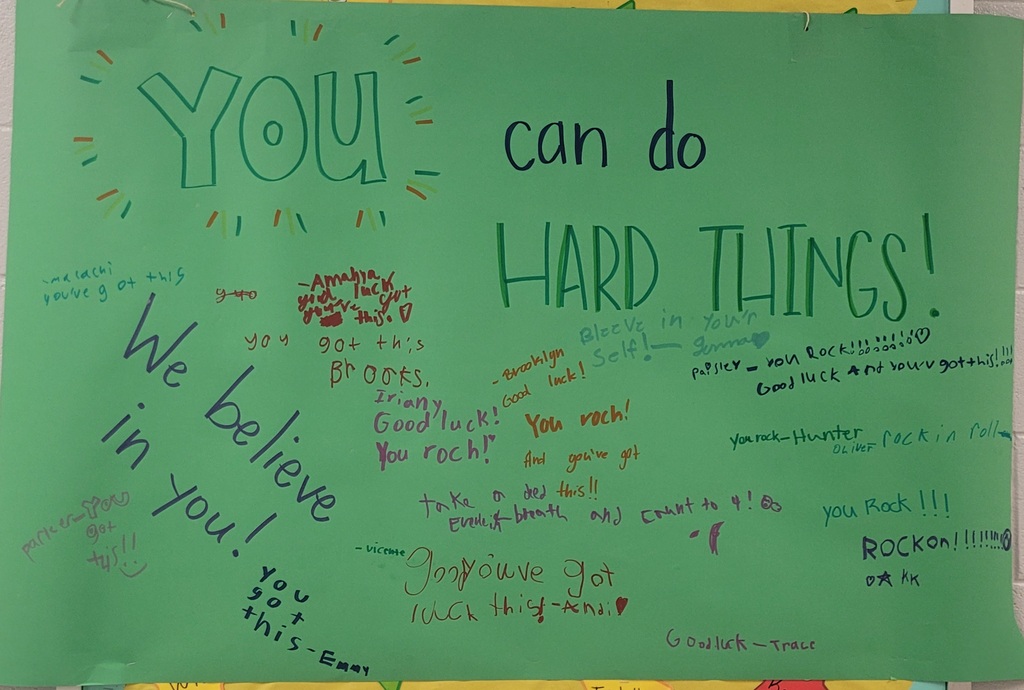 YOU can do
HARD THINGS!
-malachi
you've got this
-Amahya
good luck
you've got
this.♡
you got this
Brooks.
We believe
in you!
Bleeve in you'r
Self! - Jenna♥
-Brooklyn
Good luck!
Paisley - you Rock!!!!!!!!!♡
Good luck And you'v got this!!!
Iriany
Good luck!
You roch!
You roch!
And you've got
this!!
you rock-Hunter
Oliver-rock in roll
take a deep
breath and count to 4!
you Rock!!!
ROCKON!!!!!!!!
♡☆ KK
parker-You
got
this!!
-vicente
good you've got
luck this!-Andi♥
you
got
this-Emmy
Goodluck-Trace